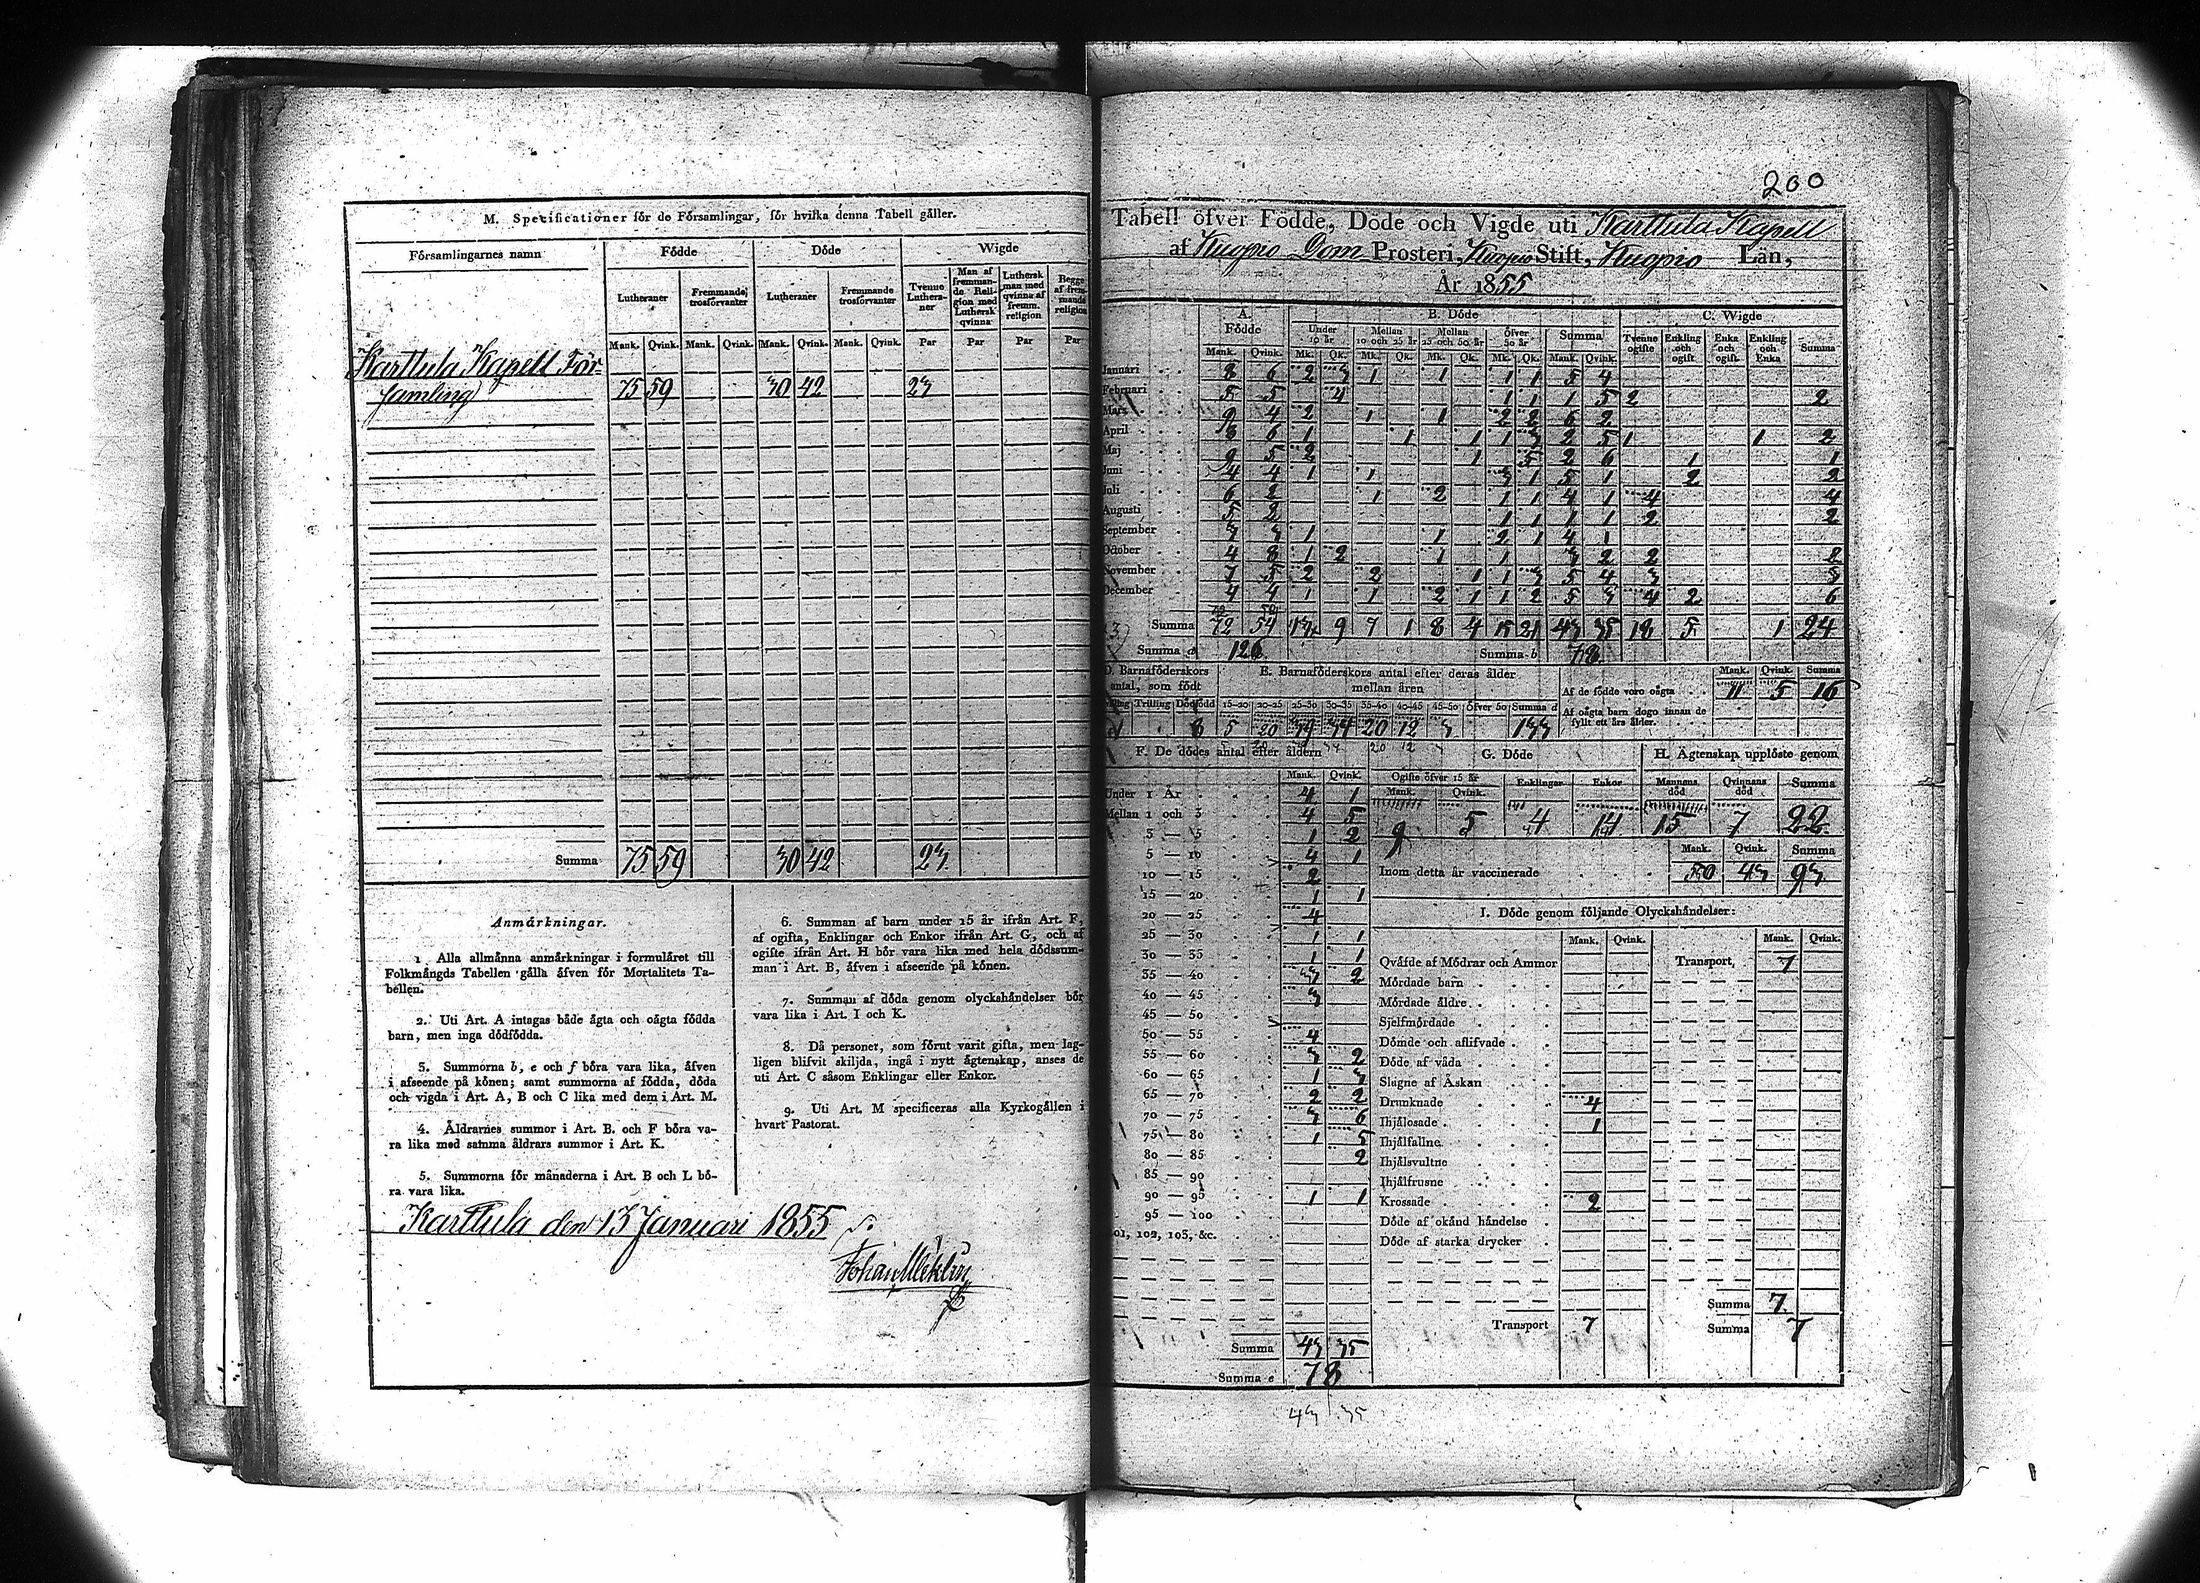 M. Specificationer för de Församlingar, för hvilka denna Tabell gäller.
Församlingarnes namn
Födde
Döde
Wigde
Lutheraner
Fremmande trosförvanter
Lutheraner
Fremmande trosförvanter
Tvenne Lutheraner
Man af fremmande Religion med Luthersk qvinna
Luthersk man med qvinna af fremm. religion
Begge af fremmande religion
Mank. Qvink. Mank. Qvink. Mank. Qvink. Mank. Qvink. Par Par Par Par
Karttula Kapell För-
samling 75 59 30 42 23
Summa 75 59 30 42 23
Anmärkningar.
1. Alla allmänna anmärkningar i formuläret till
Folkmängds Tabellen gälla äfven för Mortalitets Ta-
bellen.
2. Uti Art. A intagas både ägta och oägta födda
barn, men inga dödfödda.
3. Summorna b, e och f böra vara lika, äfven
i afseende på könen; samt summorna af födda, döda
och vigda i Art. A, B och C lika med dem i Art. M.
4. Åldrarnes summor i Art. B. och F böra va-
ra lika med samma åldrars summor i Art. K.
5. Summorna för månaderna i Art. B och L bö-
ra vara lika.
6. Summan af barn under 15 år ifrån Art. F,
af ogifta, Enklingar och Enkor ifrån Art. G, och af
ogifte ifrån Art. H bör vara lika med hela dödssum-
man i Art. B, äfven i afseende på könen.
7. Summan af döda genom olyckshändelser bör
vara lika i Art. I och K.
8. Då personer, som förut varit gifta, men lag-
ligen blifvit skiljda, ingå i nytt ägtenskap, anses de
uti Art. C såsom Enklingar eller Enkor.
9. Uti Art. M specificeras alla Kyrkogällen i
hvart Pastorat.
Karttula den 13 Januari 1855
Johan
200
Tabell öfver Födde, Döde och Vigde uti Karttula Kapell
af Kuopio Dom Prosteri, Kuopio Stift, Kuopio Län,
År 1855
A. Födde
B. Döde
C. Wigde
Under 10 år
Mellan 10 och 25 år
Mellan 25 och 50 år
Öfver 50 år
Summa
Tvenne ogifte
Enkling och ogift
Enka och ogift
Enkling och Enka
Summa
Mank. Qvink. Mk. Qk. Mk. Qk. Mk. Qk. Mk. Qk. Mank. Qvink.
Januari 8 6 2 3 1 1 1 1 5 4
Februari 5 5 4 1 1 1 5 2 2
Mars 9 4 2 1 1 2 2 6 2
April 8 6 1 1 1 1 3 2 5 1 1 2
Maj 9 5 2 1 5 2 6 1 1
Juni 4 4 1 1 3 1 5 1 2 2
Juli 6 2 1 2 1 1 4 1 4 4
Augusti 5 2 1 1 1 1 2 2
September 3 3 1 1 2 1 4 1
October 4 8 1 2 1 1 3 2 2 2
November 7 5 2 2 1 1 3 5 4 3 3
December 4 4 1 1 2 1 1 2 5 3 4 2 6
Summa 72 54 13 9 7 1 8 4 15 21 43 35 18 5 1 24
Summa a 126
Summa b 78
D. Barnaföderskors antal, som födt
Trilling Dödfödd
1 8
E. Barnaföderskors antal efter deras ålder
mellan åren
15-20 20-25 25-30 30-35 35-40 40-45 45-50 öfver 50 Summa d
5 20 39 34 20 12 3 133
Mank. Qvink. Summa
Af de födde voro oägta 11 5 16
Af oägta barn dogo innan de
fyllt ett års ålder.
F. De dödes antal efter åldern
Mank. Qvink.
Under 1 År 4 1
Mellan 1 och 3 4 5
3 — 5 1 2
5 — 10 4 1
10 — 15 2
15 — 20 1 1
20 — 25 4
25 — 30 1 1
30 — 35 1 1
35 — 40 3 2
40 — 45 3
45 — 50
50 — 55 4
55 — 60 3 2
60 — 65 1 3
65 — 70 2 2
70 — 75 3 6
75 — 80 1 5
80 — 85 2
85 — 90
90 — 95 1 1
95 — 100
101, 102, 103, &c.
Summa 43 35
Summa e 78
43 35
G. Döde
Ogifte öfver 15 år
Enklingar
Enkor
Mank. Qvink.
9 5 4 14
H. Ägtenskap upplöste genom
Mannens död
Qvinnans död
Summa
15 7 22
Mank. Qvink. Summa
Inom detta år vaccinerade 50 43 93
I. Döde genom följande Olyckshändelser:
Mank. Qvink. Mank. Qvink.
Qväfde af Mödrar och Ammor
Transport, 7
Mördade barn
Mördade äldre
Sjelfmördade
Dömde och aflifvade
Döde af våda
Slagne af Åskan
Drunknade 4
Ihjälosade 1
Ihjälfallne
Ihjälsvultne
Ihjälfrusne
Krossade 2
Döde af okänd händelse
Döde af starka drycker
Transport 7
Summa 7
Summa 7